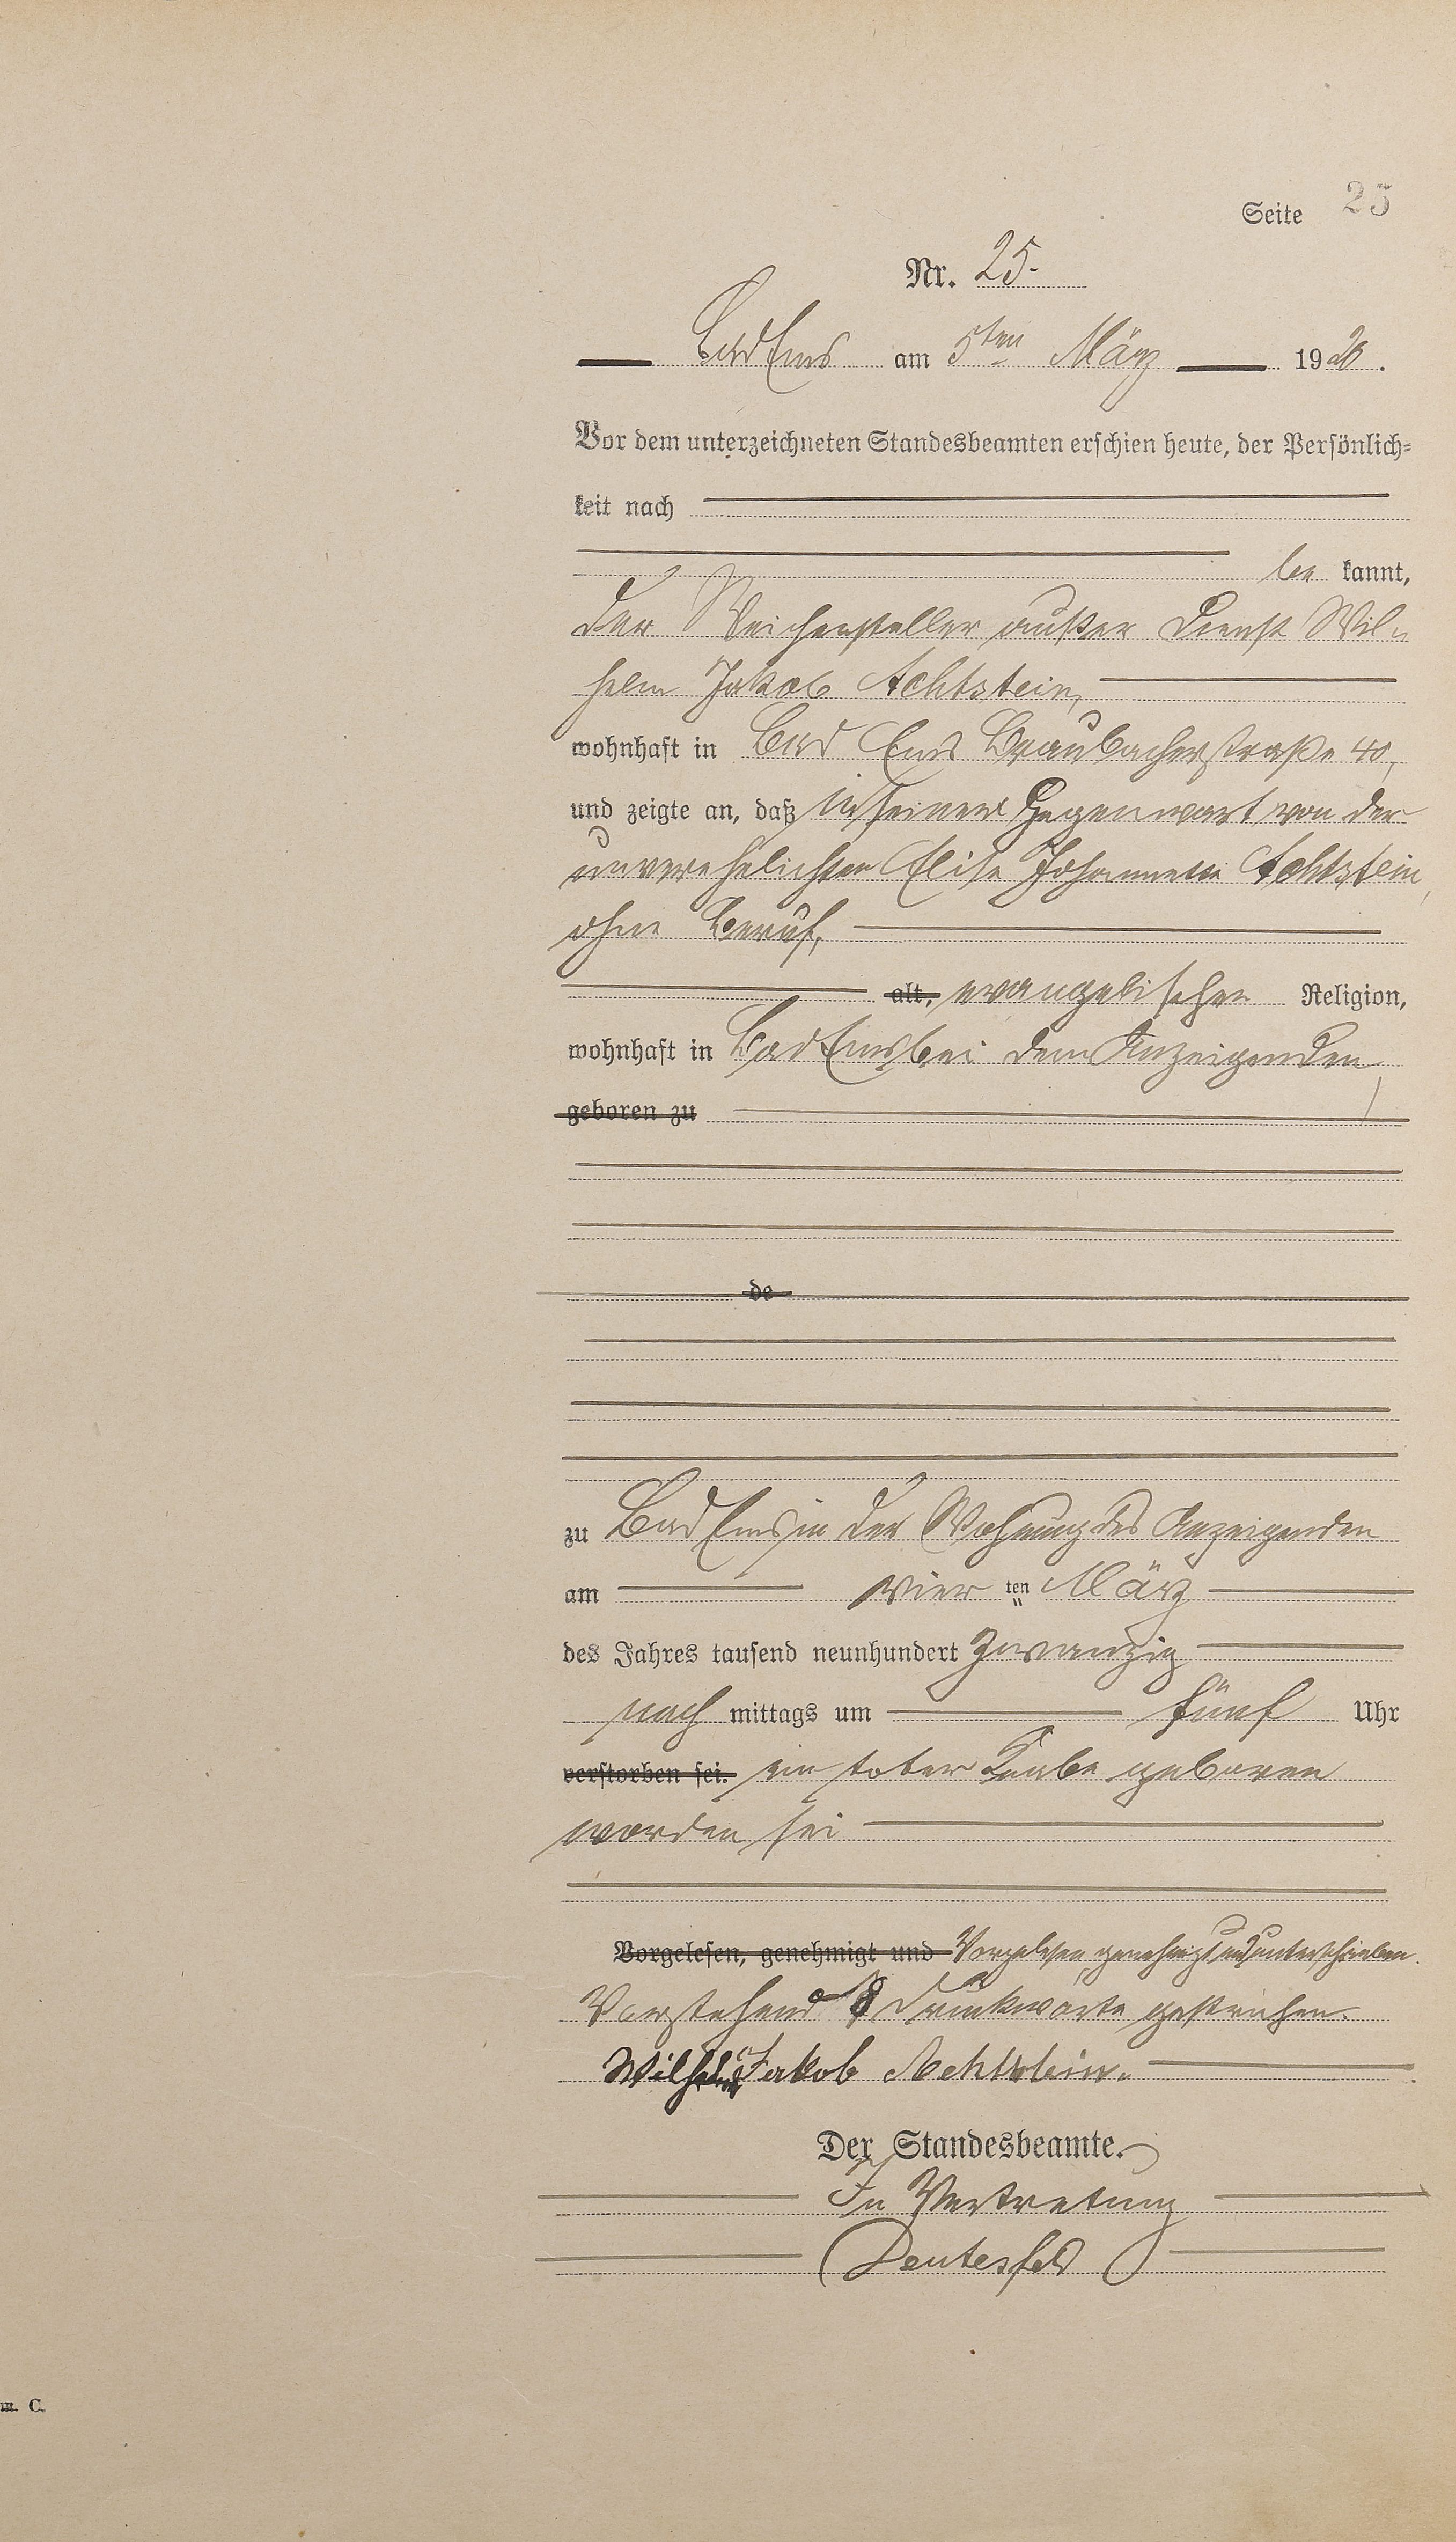 Seite 25
Nr. 25.
Bad Ems am 5ten März 1920.
Vor dem unterzeichneten Standesbeamten erschien heute, der Persönlich=
keit nach
be kannt,
der Weichensteller außer Dienst Wil-
helm Jakob Achtstein,
wohnhaft in Bad Ems Braubacherstraße 40,
und zeigte an, daß in seiner Gegenwart von der
unverehelichten Elise Johannette Achtstein,
ohne Beruf,
alt, evangelischer Religion,
wohnhaft in Bad Ems bei dem Anzeigenden,
geboren zu
de
zu Bad Ems in der Wohnung des Anzeigenden
am vier ten März
des Jahres tausend neunhundert zwanzig
nach mittags um fünf Uhr
verstorben sei. ein toter Knabe geboren
worden sei
Vorgelesen, genehmigt und Vorgelesen, genehmigt und unterschrieben.
Vorstehend 8 Druckworte gestrichen.
Wilhelm Jakob Achtstein.
Der Standesbeamte.
In Vertretung
m. C.